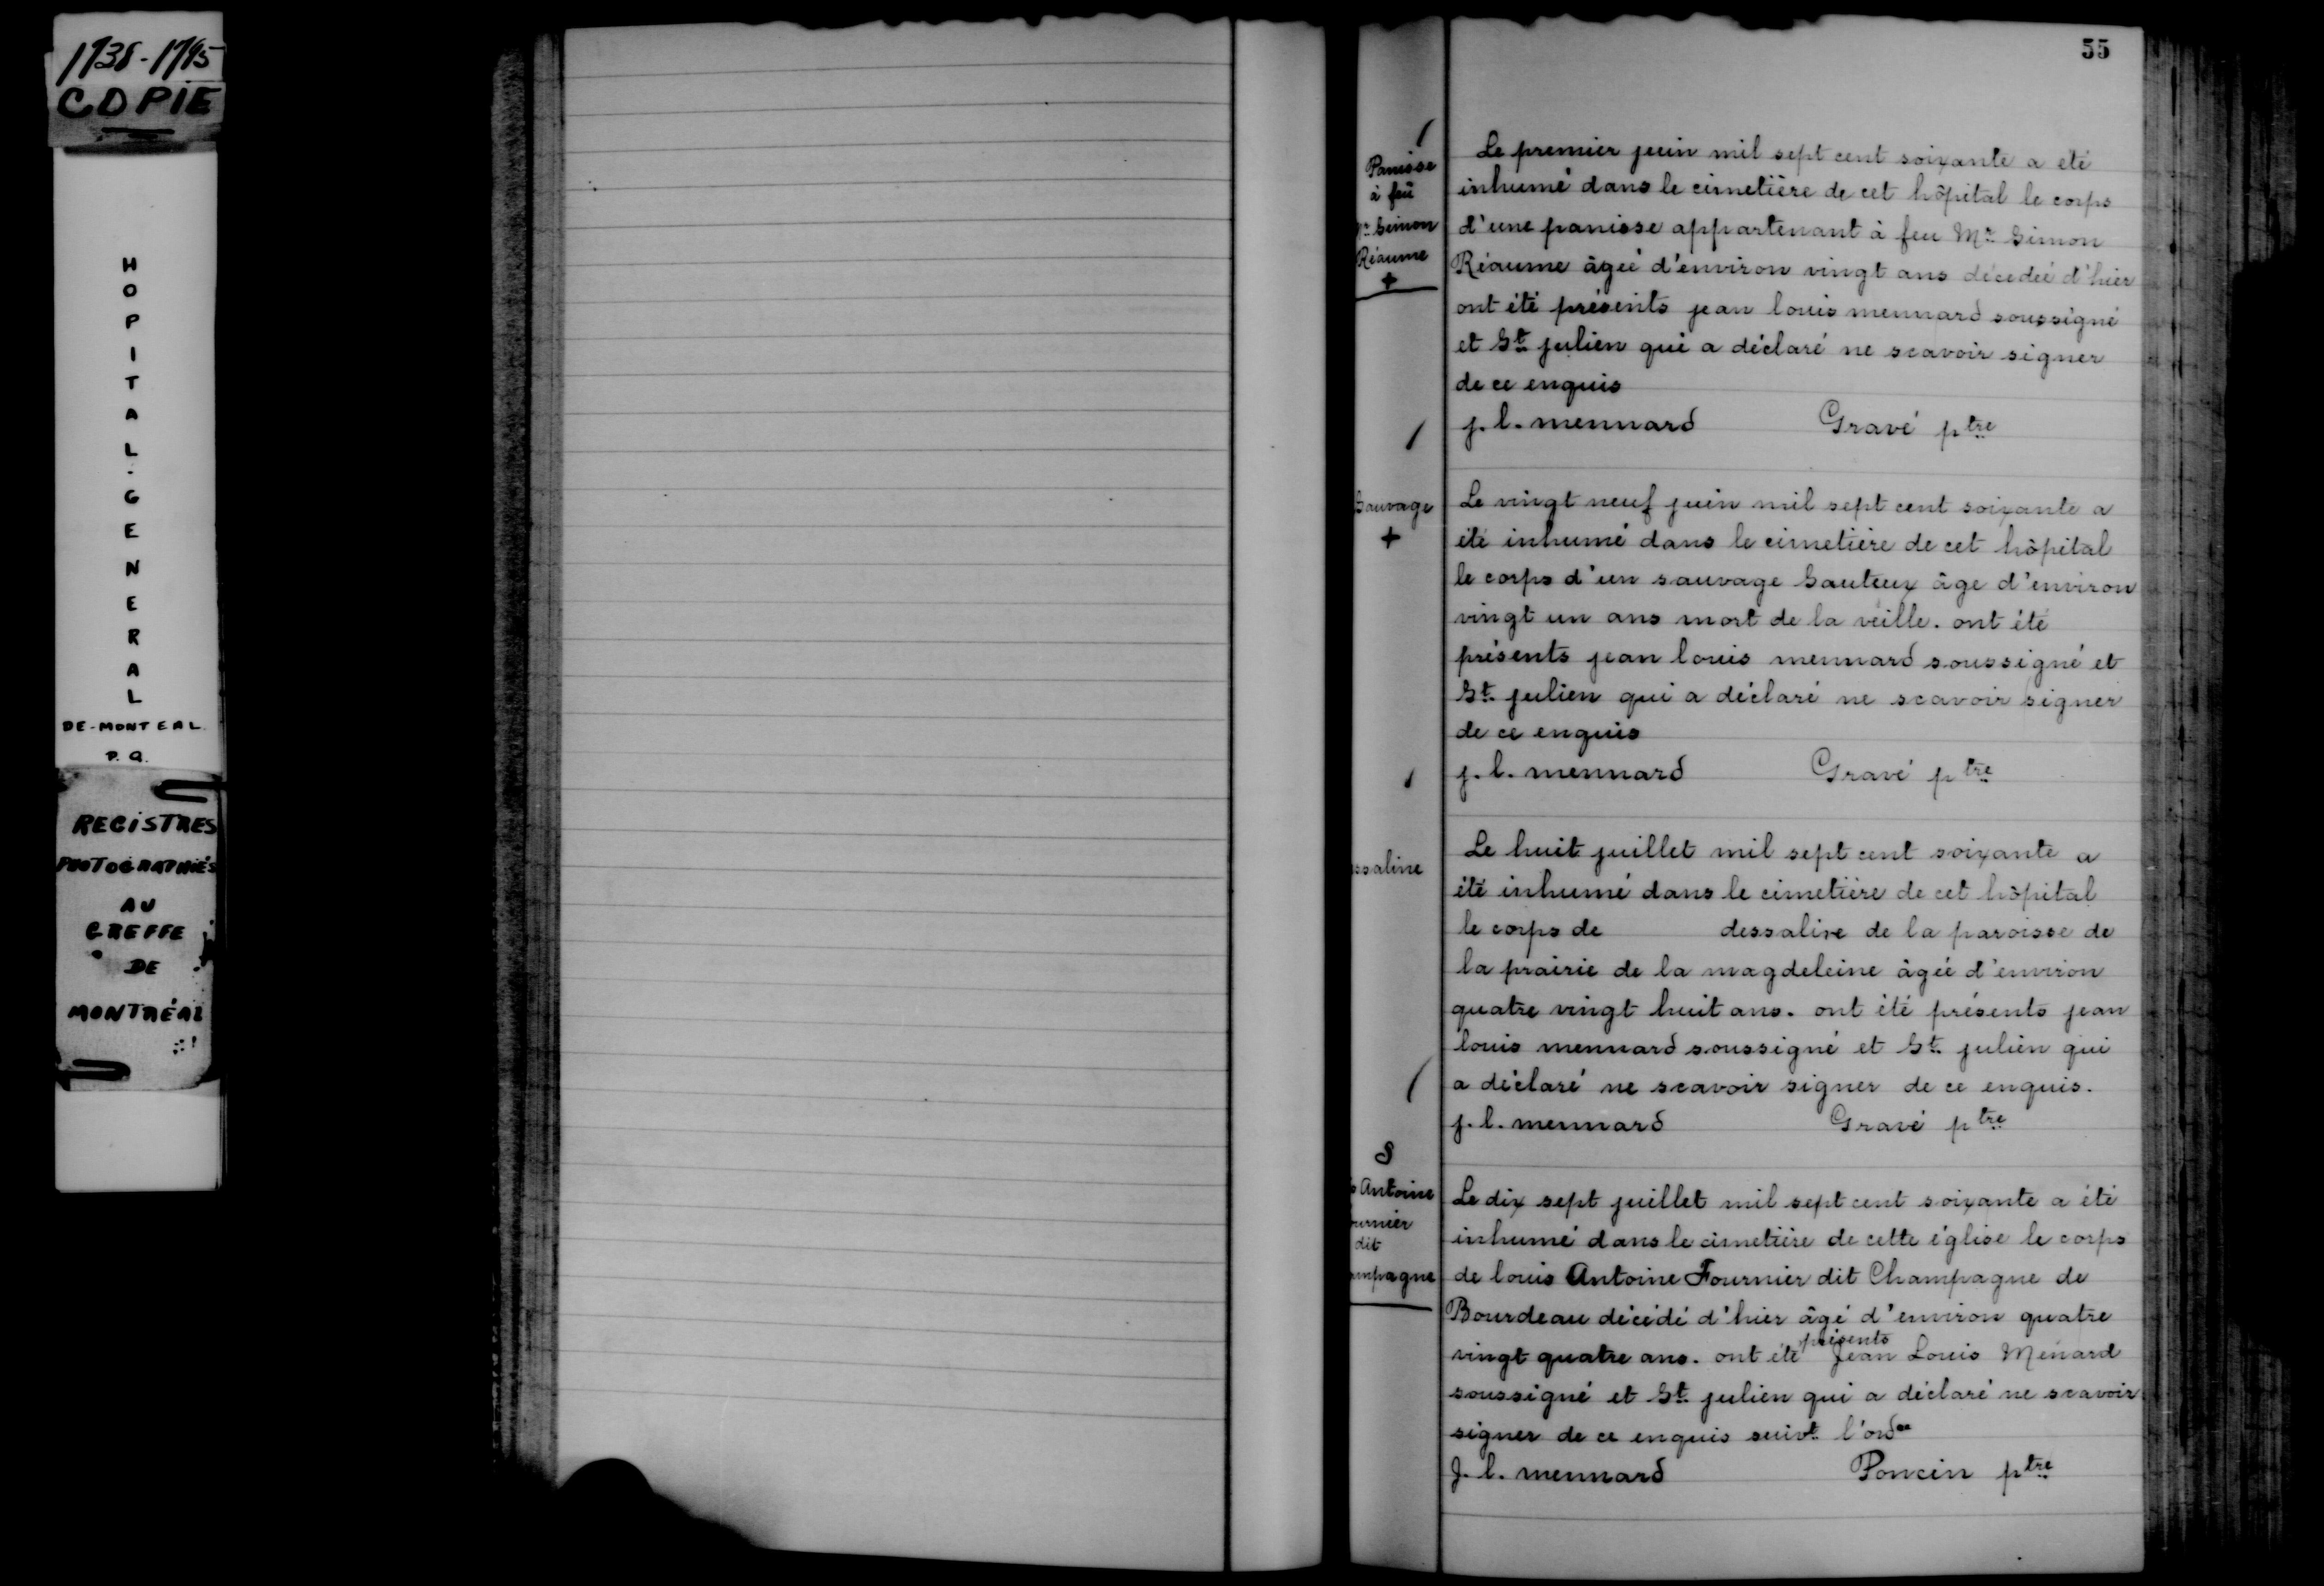 1738-1795
COPIE
HOPITAL-GENERAL
DE-MONTEAL
P.Q.
REGISTRES
PHOTOGRAPHIÉS
AU
GREFFE
DE
MONTRÉAL
55
Panisse
à feû
Mr Simon
Réaume
+
Le premier juin mil sept cent soixante a été
inhumé dans le cimetière de cet hôpital le corps
d'une panisse appartenant à feu Mr Simon
Réaume âgée d'environ vingt ans décédée d'hier
ont été présents jean louis mennard soussigné
et St julien qui a déclaré ne scavoir signer
de ce enquis
j. l. mennard Gravé ptre
Sauvage
+
Le vingt neuf juin mil sept cent soixante a
été inhumé dans le cimetière de cet hôpital
le corps d'un sauvage Sauteux âge d'environ
vingt un ans mort de la veille. ont été
présents jean louis mennard soussigné et
St julien qui a déclaré ne scavoir signer
de ce enquis
j. l. mennard Gravé ptre
ssaline
Le huit juillet mil sept cent soixante a
été inhumé dans le cimetière de cet hôpital
le corps de dessaline de la paroisse de
la prairie de la magdeleine âgée d'environ
quatre vingt huit ans. ont été présents jean
louis mennard soussigné et St julien qui
a déclaré ne scavoir signer de ce enquis.
j. l. mennard Gravé ptre
S
s Antoine
ournier
dit
ampagne
Le dix sept juillet mil sept cent soixante a été
inhumé dans le cimetière de cette église le corps
de louis Antoine Fournier dit Champagne de
Bourdeau décédé d'hier âgé d'environ quatre
vingt quatre ans. ont été présents Jean Louis Ménard
soussigné et St julien qui a déclaré ne scavoir
signer de ce enquis suivt l'ordce
J. l. mennard Poncin ptre